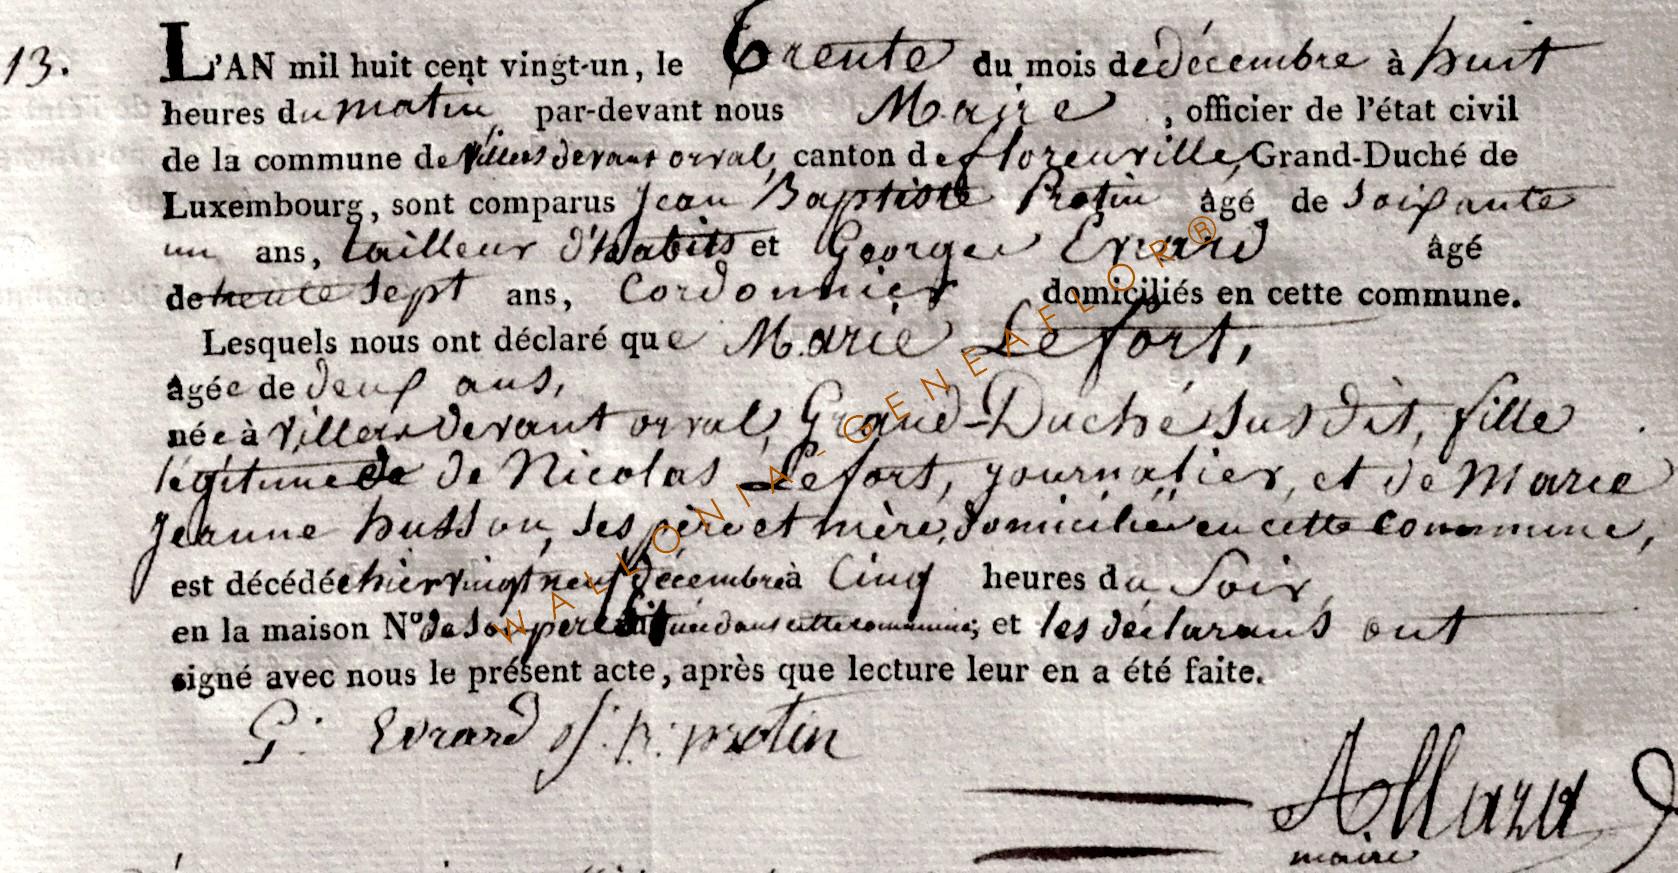 13.
L'AN mil huit cent vingt-un, le Trente du mois de décembre à huit
heures du matin par-devant nous Maire, officier de l'état civil
de la commune de Villers devant orval, canton de florenville, Grand-Duché de
Luxembourg, sont comparus Jean Baptiste Protin âgé de soixante
un ans, tailleur d'habits et George Evrard âgé
de trente sept ans, Cordonnier domiciliés en cette commune.
Lesquels nous ont déclaré que Marie Lefort,
âgée de deux ans,
née à Villers devant orval, Grand-Duché susdit, fille
légitime de de Nicolas Lefort, journalier, et de Marie
Jeanne husson, ses père et mère, domiciliés en cette commune,
est décédée hier vingt neuf décembre à Cinq heures du Soir,
en la maison N° de son père située dans cette commune; et les déclarans ont
signé avec nous le présent acte, après que lecture leur en a été faite.
G. Evrard J. B. protin
maire
WALLONIA-GENEAFLOR®